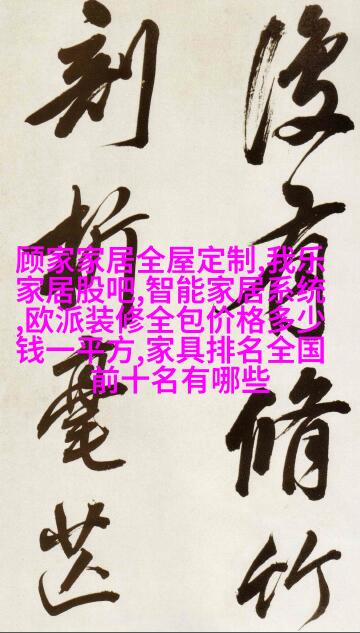 後有脩竹
析毫
顾家家居全屋定制,我乐
家居股吧,智能家居系统
,欧派装修全包价格多少
钱一平方,家具排名全国
前十名有哪些